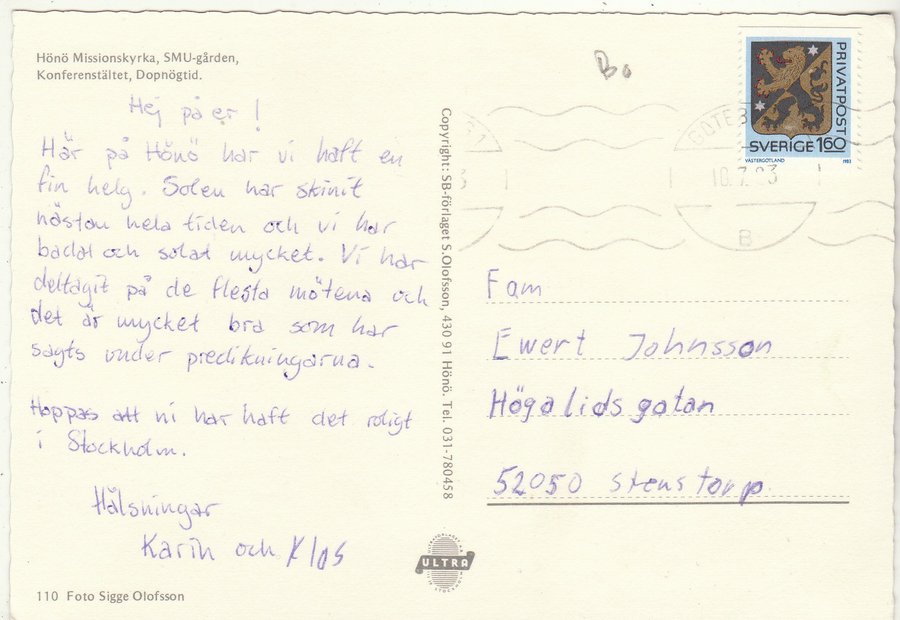 Hönö Missionskyrka, SMU-gården,
Konferenstältet, Dopnögtid.
Hej på er!
Här på Hönö har vi haft en
fin helg. Solen har skinit
nästan hela tiden och vi har
badat och solat mycket. Vi har
deltagit på de flesta mötena och
det är mycket bra som har
sagts under predikningarna.
Hoppas att ni har haft det roligt
i Stockholm.
Hälsningar
Karin och Klas
110 Foto Sigge Olofsson
Copyright: SB-förlaget S.Olofsson, 430 91 Hönö. Tel. 031-780458
ULTRA
Bo
PRIVATPOST
SVERIGE 160
VÄSTERGÖTLAND 1983
B
Fam
Ewert Johnsson
Högalidsgatan
52050 Stenstorp